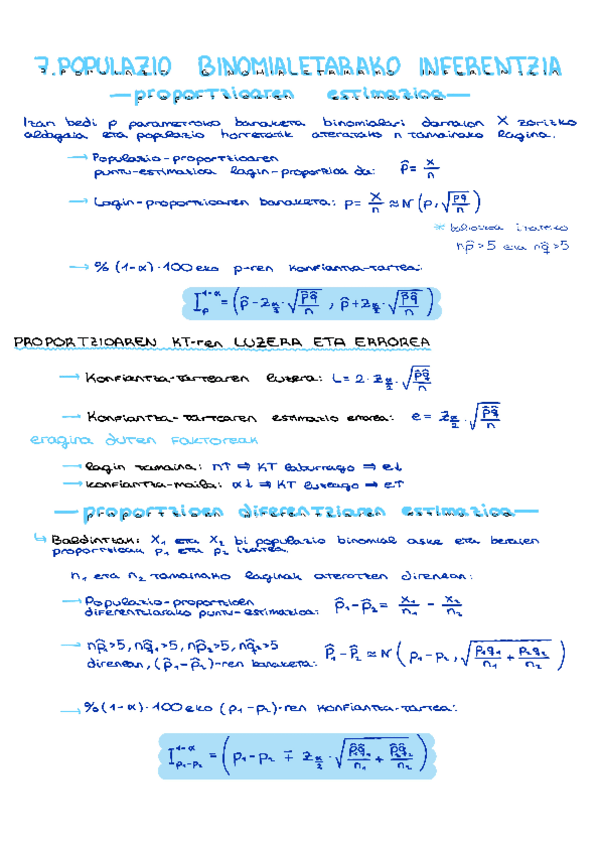 7. POPULAZIO BINOMIALETARAKO INFERENTZIA
— proportzioaren estimazioa —
Izan bedi p parametroko banaketa binomialari darraion X zorizko
aldagaia eta populazio horretatik ateratako n tamainako lagina.
→ Populazio-proportzioaren
puntu-estimazioa lagin-proportzioa da: p̂ = x/n
→ Lagin-proportzioaren banaketa: p = X/n ≈ N(p, √(pq/n))
* baliozkoa izateko
np̂ > 5 eta nq̂ > 5
→ % (1-α)·100eko p-ren konfiantza-tartea:
I_p^(1-α) = (p̂ - z_(α/2)·√(p̂q̂/n) , p̂ + z_(α/2)·√(p̂q̂/n))
PROPORTZIOAREN KT-ren LUZERA ETA ERROREA
→ Konfiantza-tartearen luzera: L = 2·z_(α/2)·√(p̂q̂/n)
→ Konfiantza-tartearen estimazio errorea: e = z_(α/2)·√(p̂q̂/n)
eragina duten FAKTOREAK
→ lagin tamaina: n↑ ⇒ KT laburrago ⇒ e↓
→ konfiantza-maila: α↓ ⇒ KT luzeago ⇒ e↑
— proportzioen diferentziaren estimazioa —
↳ Baldintzak: X₁ eta X₂ bi populazio binomial aske eta beraien
proportzioak p₁ eta p₂ izatea.
n₁ eta n₂ tamainako laginak ateratzen direnean:
→ Populazio-proportzioen
diferentziarako puntu-estimazioa: p̂₁ - p̂₂ = x₁/n₁ - x₂/n₂
→ np̂₁>5, nq̂₁>5, np̂₂>5, nq̂₂>5
direnean, (p̂₁-p̂₂)-ren banaketa: p̂₁ - p̂₂ ≈ N(p₁-p₂, √(p₁q₁/n₁ + p₂q₂/n₂))
→ % (1-α)·100eko (p₁-p₂)-ren konfiantza-tartea:
I_(p₁-p₂)^(1-α) = (p₁-p₂ ∓ z_(α/2)·√(p̂₁q̂₁/n₁ + p̂₂q̂₂/n₂))